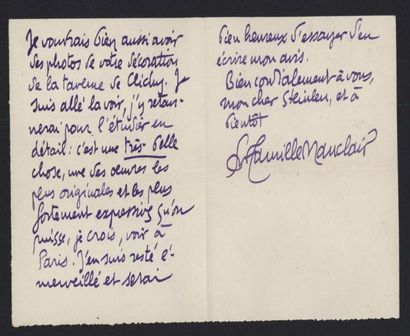 Je voudrais bien aussi avoir
des photos de votre décoration
de la taverne de Clichy. Je
suis allé la voir, j'y retour-
nerai pour l'étudier en
détail: c'est une très belle
chose, une des œuvres les
plus originales et les plus
fortement expressives qu'on
puisse, je crois, voir à
Paris. J'en suis resté é-
merveillé et serai
bien heureux d'essayer d'en
écrire mon avis.
Bien cordialement à vous,
mon cher Steinlen, et à
bientôt
Camille Mauclair